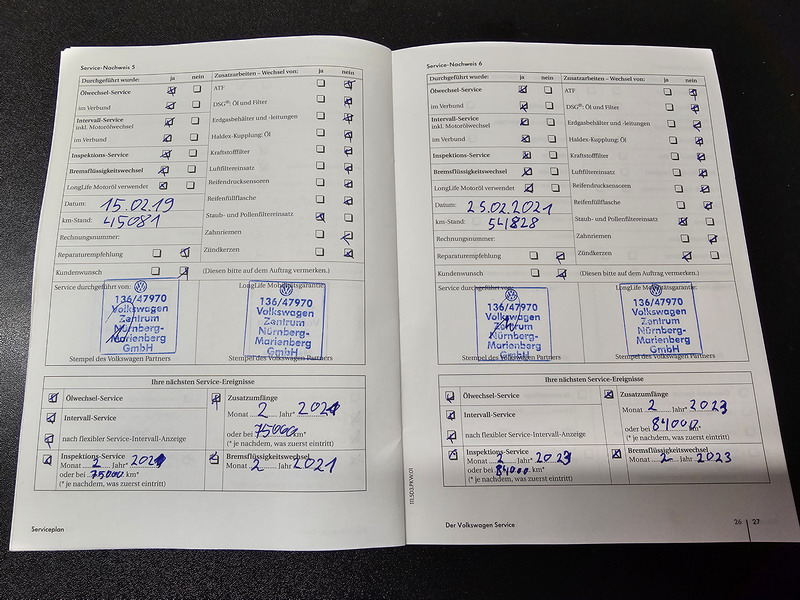 Service-Nachweis 5
Durchgeführt wurde: ja nein Zusatzarbeiten – Wechsel von: ja nein
Ölwechsel-Service ATF
im Verbund DSG®: Öl und Filter
Intervall-Service Erdgasbehälter und -leitungen
inkl. Motorölwechsel
im Verbund Haldex-Kupplung: Öl
Inspektions-Service Kraftstofffilter
Bremsflüssigkeitswechsel Luftfiltereinsatz
LongLife Motoröl verwendet Reifendrucksensoren
Datum: 15.02.19 Reifenfüllflasche
km-Stand: 45081 Staub- und Pollenfiltereinsatz
Rechnungsnummer: Zahnriemen
Reparaturempfehlung Zündkerzen
Kundenwunsch (Diesen bitte auf dem Auftrag vermerken.)
Service durchgeführt von: LongLife Mobilitätsgarantie:
136/47970 136/47970
Volkswagen Volkswagen
Zentrum Zentrum
Nürnberg- Nürnberg-
Marienberg Marienberg
GmbH GmbH
Stempel des Volkswagen Partners Stempel des Volkswagen Partners
Ihre nächsten Service-Ereignisse
Ölwechsel-Service Zusatzumfänge
Intervall-Service Monat 2 Jahr* 2021
nach flexibler Service-Intervall-Anzeige oder bei 75000 km*
(* je nachdem, was zuerst eintritt)
Inspektions-Service Bremsflüssigkeitswechsel
Monat 2 Jahr 2021 Monat 2 Jahr 2021
oder bei 75000 km*
(* je nachdem, was zuerst eintritt)
Serviceplan
111.5D3.PKW.01
Service-Nachweis 6
Durchgeführt wurde: ja nein Zusatzarbeiten – Wechsel von: ja nein
Ölwechsel-Service ATF
im Verbund DSG®: Öl und Filter
Intervall-Service Erdgasbehälter und -leitungen
inkl. Motorölwechsel
im Verbund Haldex-Kupplung: Öl
Inspektions-Service Kraftstofffilter
Bremsflüssigkeitswechsel Luftfiltereinsatz
LongLife Motoröl verwendet Reifendrucksensoren
Datum: 25.02.2021 Reifenfüllflasche
km-Stand: 54828 Staub- und Pollenfiltereinsatz
Rechnungsnummer: Zahnriemen
Reparaturempfehlung Zündkerzen
Kundenwunsch (Diesen bitte auf dem Auftrag vermerken.)
Service durchgeführt von: LongLife Mobilitätsgarantie:
136/47970 136/47970
Volkswagen Volkswagen
Zentrum Zentrum
Nürnberg- Nürnberg-
Marienberg Marienberg
GmbH GmbH
Stempel des Volkswagen Partners Stempel des Volkswagen Partners
Ihre nächsten Service-Ereignisse
Ölwechsel-Service Zusatzumfänge
Intervall-Service Monat 2 Jahr* 2023
nach flexibler Service-Intervall-Anzeige oder bei 84000 km*
(* je nachdem, was zuerst eintritt)
Inspektions-Service Bremsflüssigkeitswechsel
Monat 2 Jahr 2023 Monat 2 Jahr 2023
oder bei 84000 km*
(* je nachdem, was zuerst eintritt)
Der Volkswagen Service 26 27